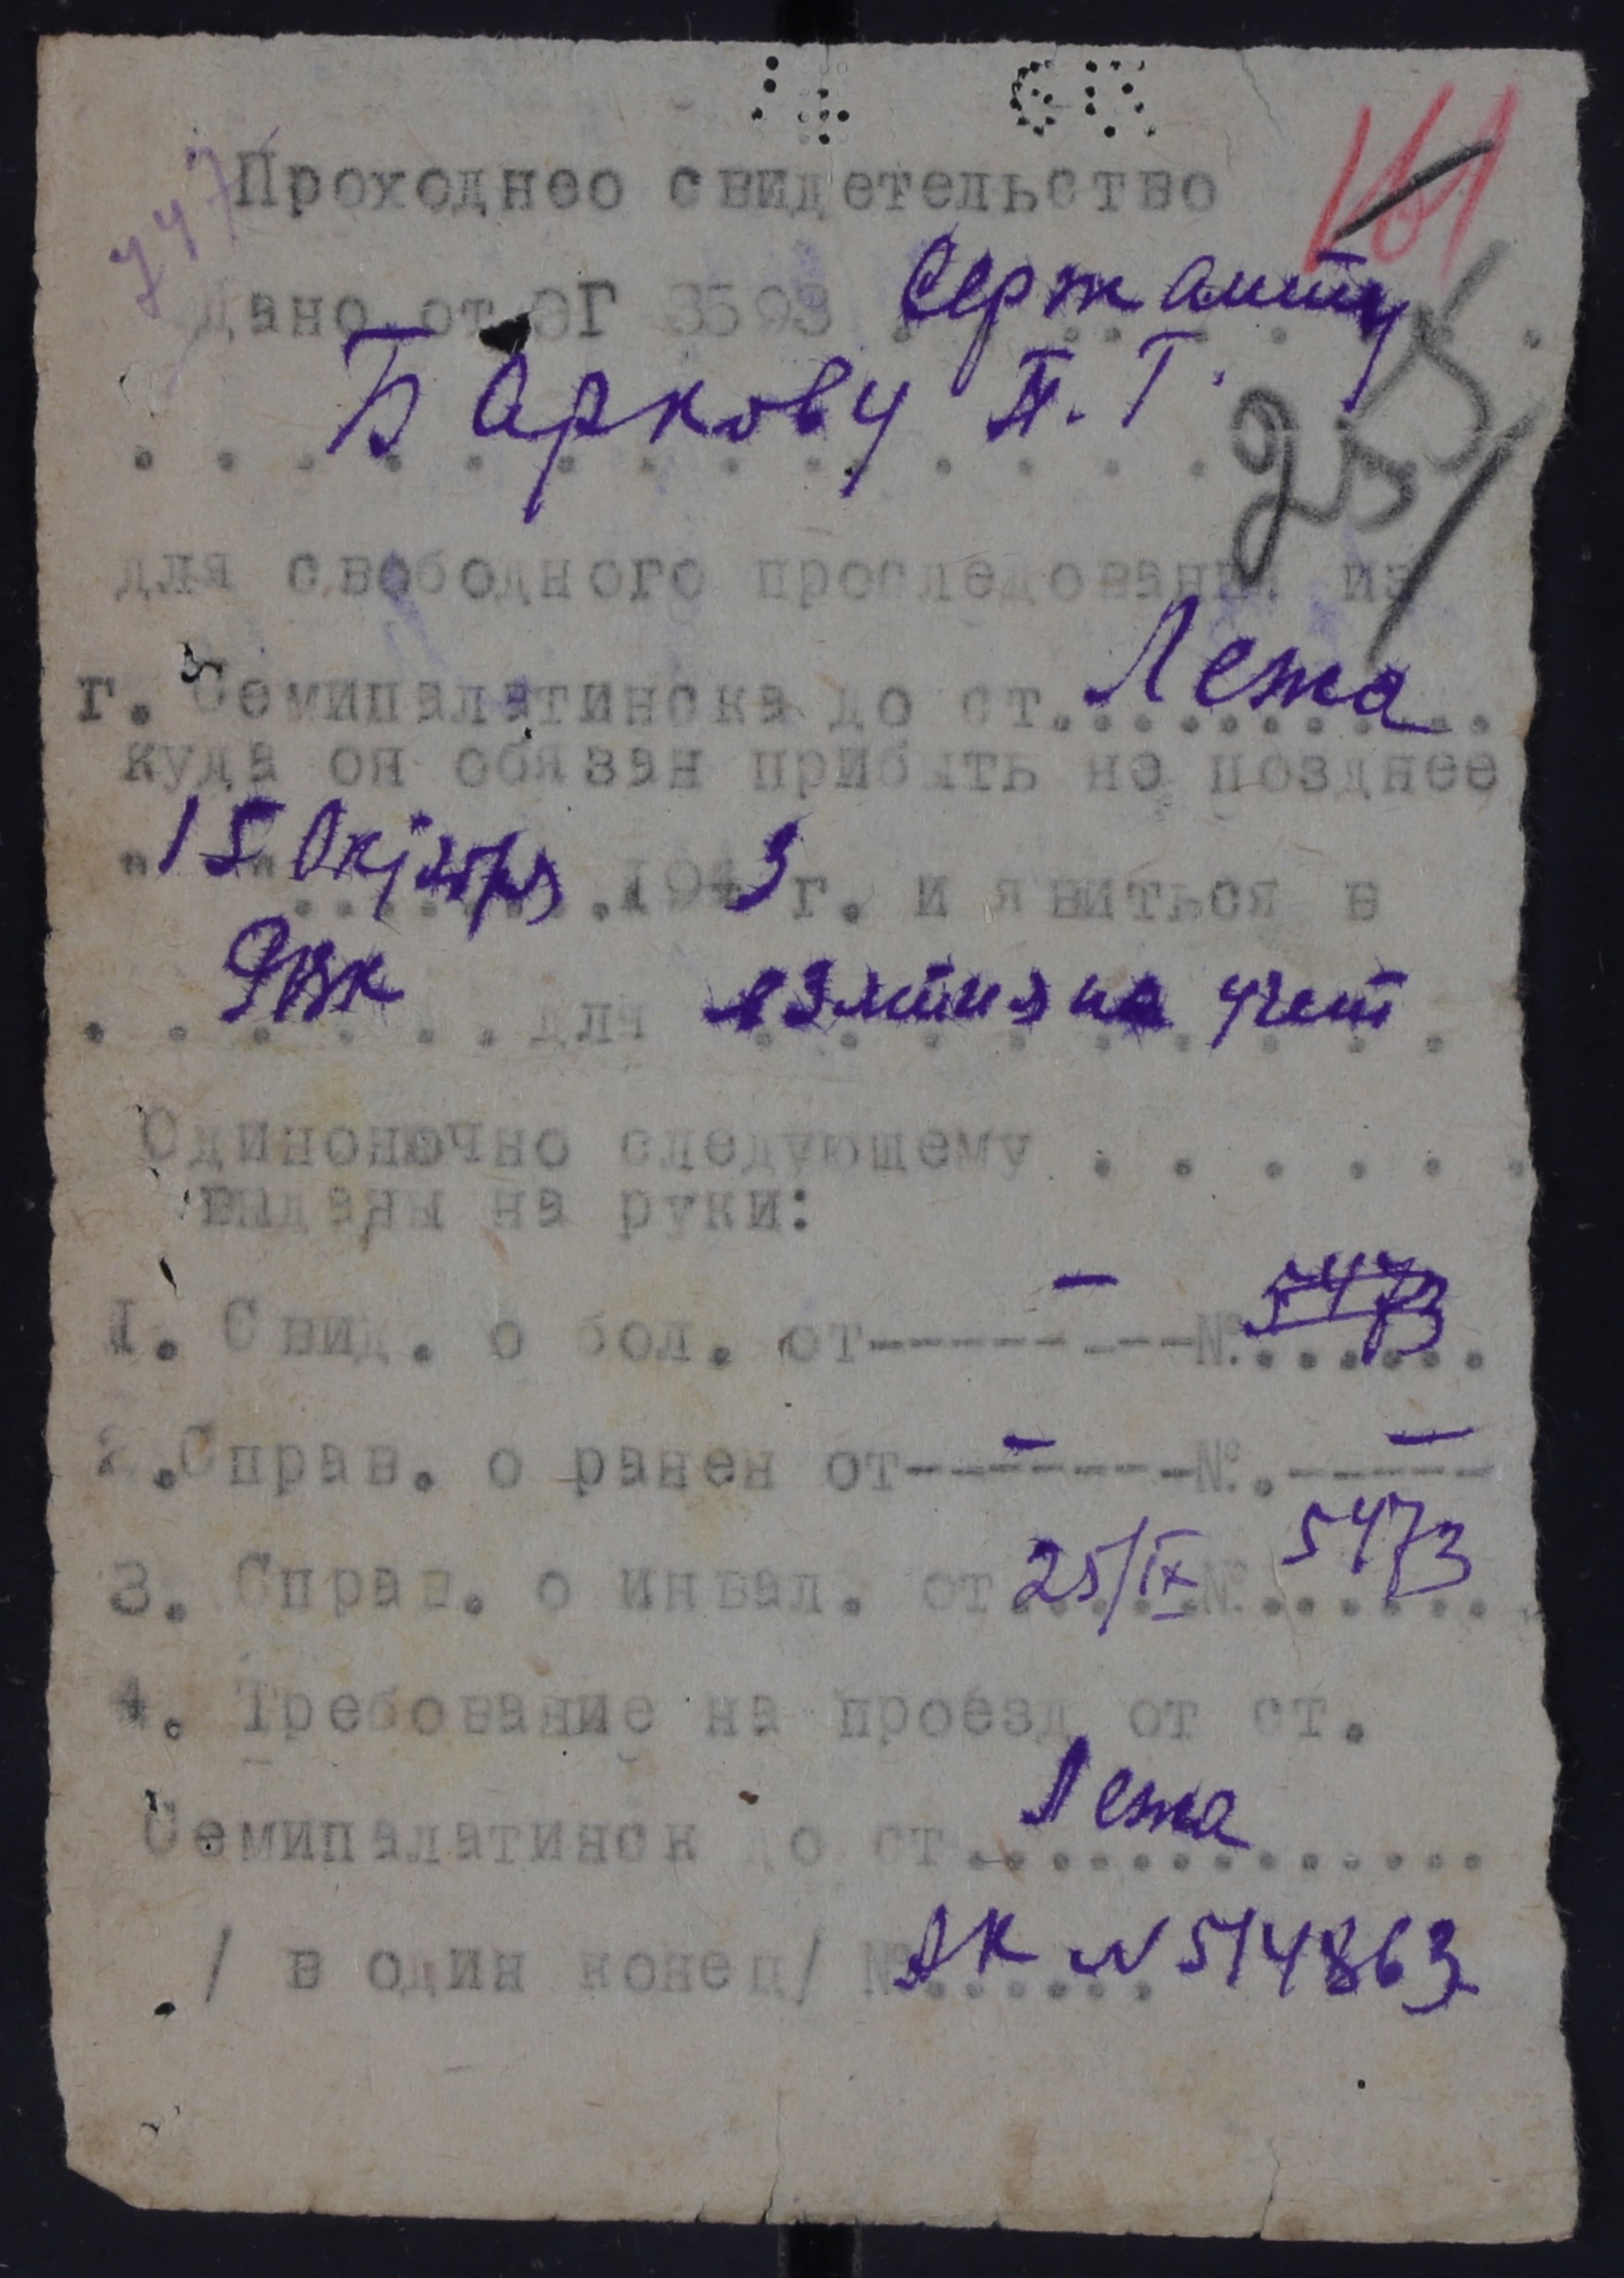 161
747
Проходнео свидетельство
Дано от ЭГ 3593 Сержанту
Баркову П. Г.
25
для свободного проследования из
г. Семипалатинска до ст. Лежа
куда он обязан прибыть не позднее
"15" Октября 1943 г. и явиться в
РВК для взятия на учет
Одинононочно следующему . . . . . .
выданы на руки:
1. Свид. о бол. от-------- — №. 5473
2. Справ. о ранен от-------- — №. — -----
3. Справ. о инвал. от 25/IX № 5473
4. Требование на проезд от ст.
Семипалатинск до ст. Лежа
/ в один конец/ № АК № 514863